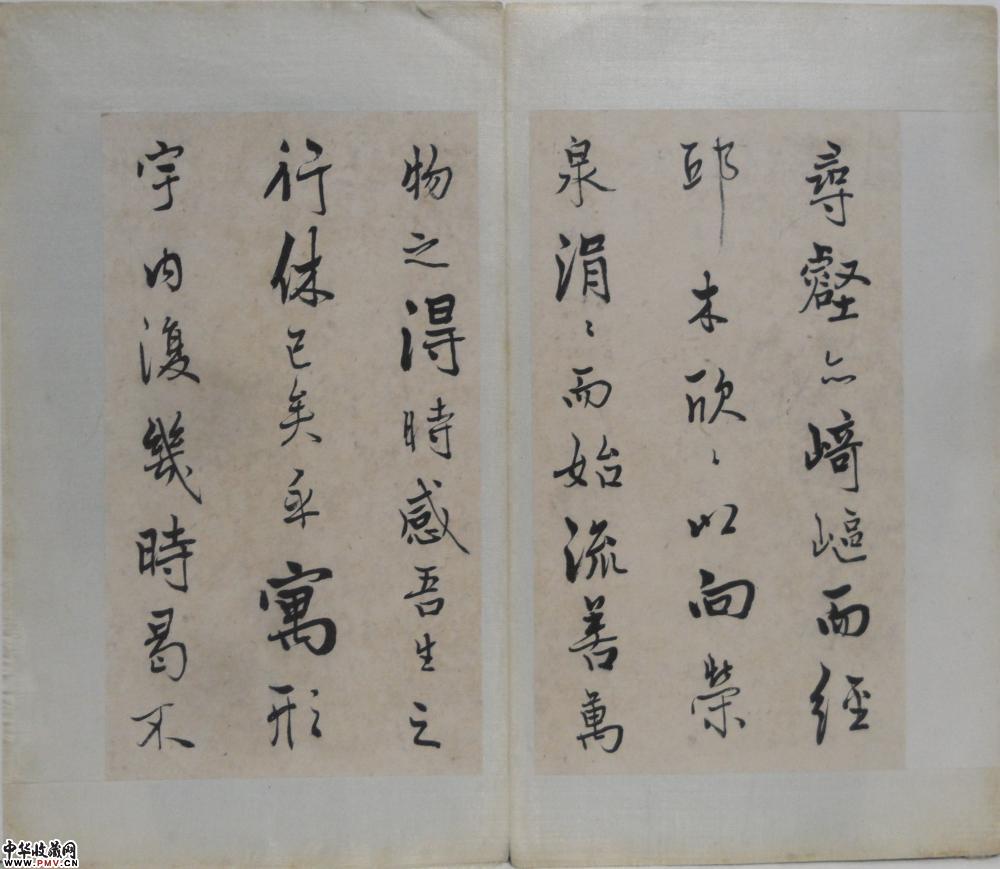 尋壑亦崎嶇而經
邱木欣〻以向榮
泉涓〻而始流善萬
物之得時感吾生之
行休已矣乎寓形
宇内復幾時曷不
中华收藏网
www.PMV.CN